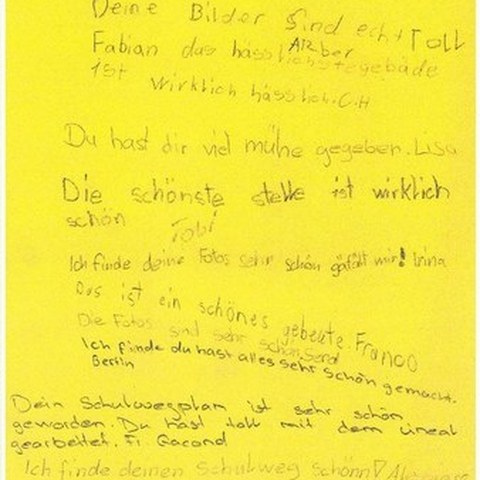 Deine Bilder sind echt Toll
Fabian das hässlichstegebäde
Aber
ist wirklich hässlich. C.H
Du hast dir viel mühe gegeben. Lisa
Die schönste stelle ist wirklich
schön Tobi
Ich finde deine Fotos sehr schön gefält mir! Irina
Das ist ein schönes gebeute. Franco
Die Fotos sind sehr schön.
Ich finde du hast alles sehr schön gemacht.
Berfin
Dein Schulwegplan ist sehr schön
geworden. Du hast toll mit dem Lineal
gearbeitet. Fr. Gacond
Ich finde deinen Schulweg schönn!